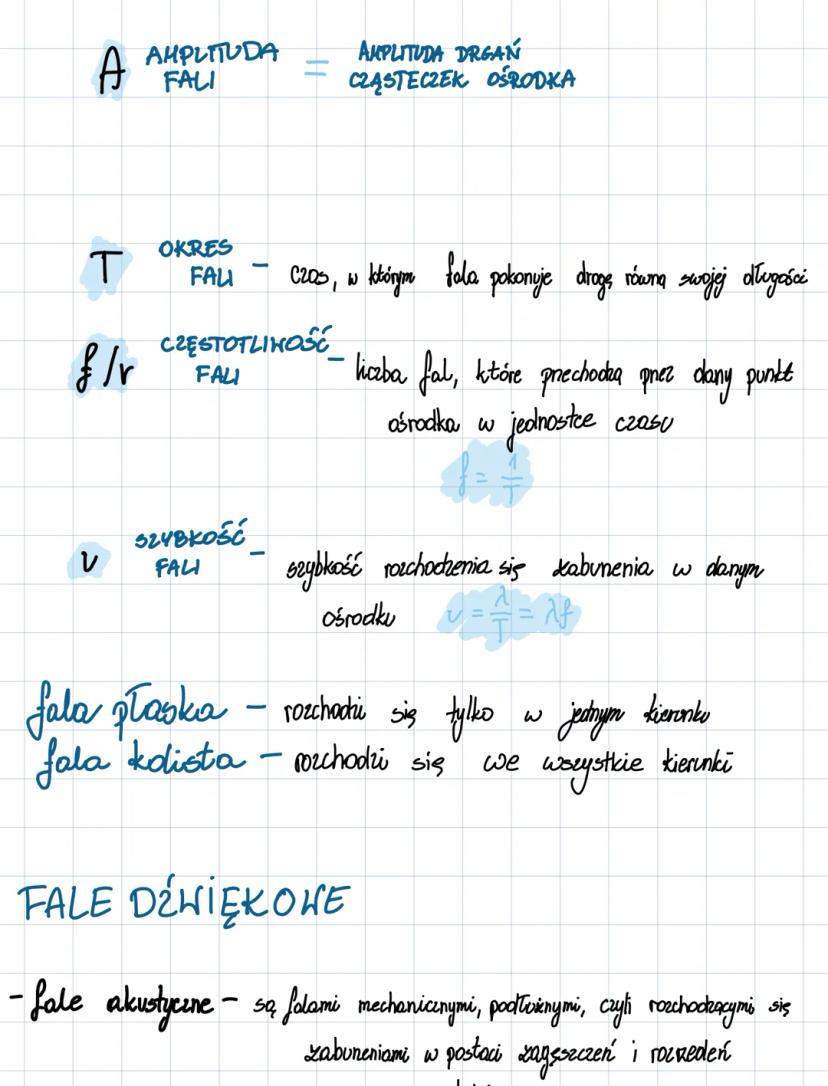 A AMPLITUDA = AMPLITUDA DRGAŃ
FALI CZĄSTECZEK OŚRODKA
T OKRES
FALI – czas, w którym fala pokonuje drogę równą swojej długości
f/ν CZĘSTOTLIWOŚĆ –
FALI liczba fal, które przechodzą przez dany punkt
ośrodka w jednostce czasu
f = 1/T
v SZYBKOŚĆ –
FALI szybkość rozchodzenia się zaburzenia w danym
ośrodku v = λ/T = λf
fala płaska – rozchodzi się tylko w jednym kierunku
fala kolista – rozchodzi się we wszystkie kierunki
FALE DŹWIĘKOWE
- fale akustyczne – są falami mechanicznymi, podłużnymi, czyli rozchodzącymi się
zaburzeniami w postaci zagęszczeń i rozrzedzeń